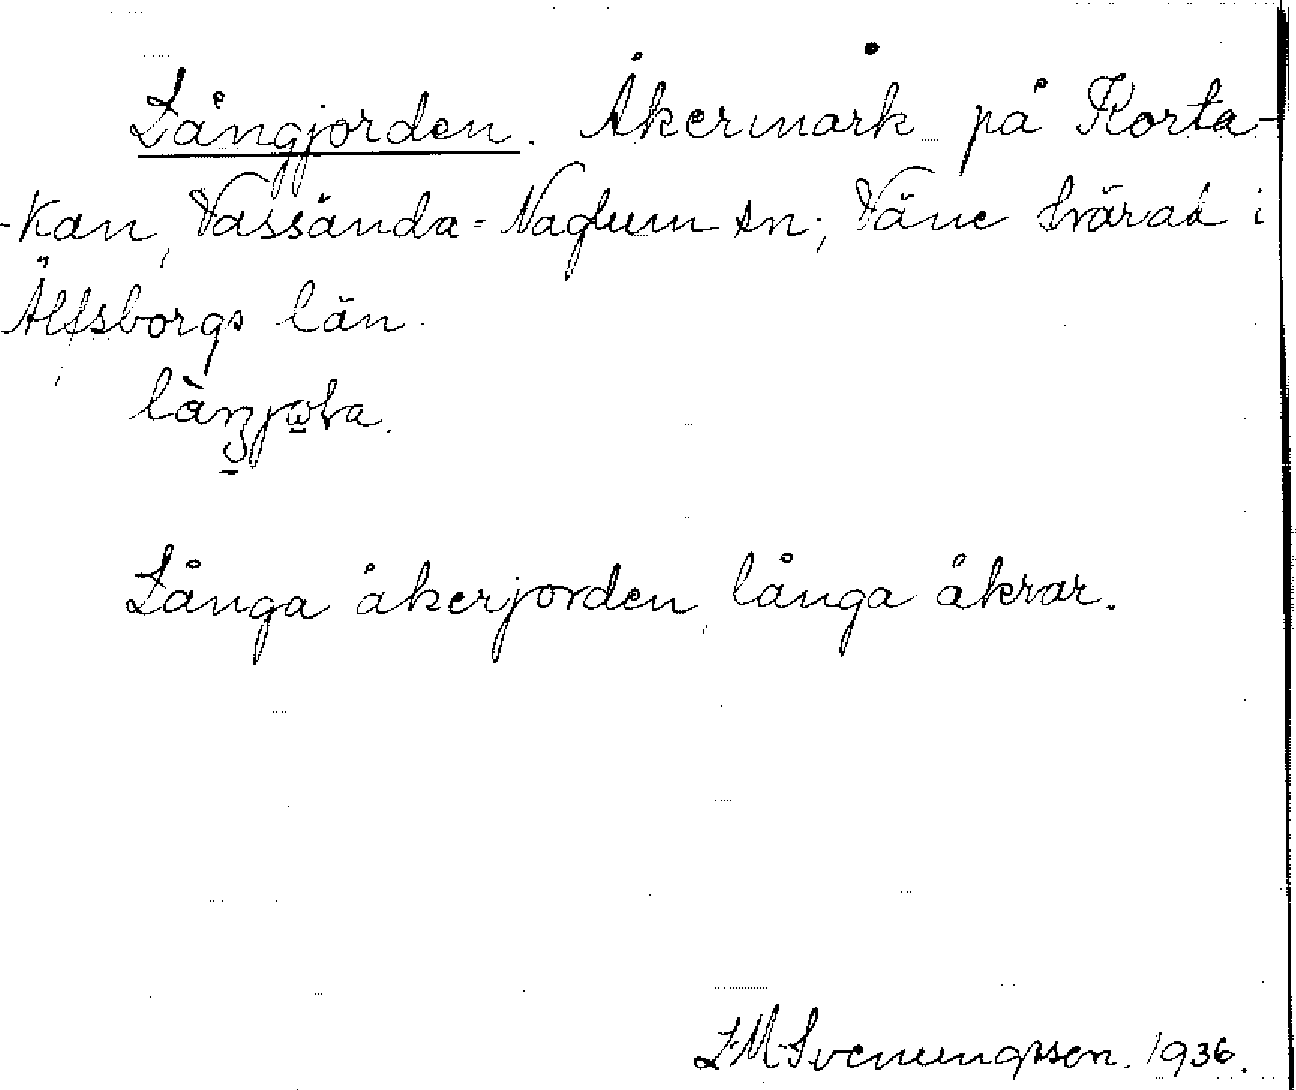 Långjorden. Åkermark på Korta-
-kan, Vassända-Naglum sn; Väne härad i
Älfsborgs län.
Långa åkerjorden, långa åkrar.
L.M. Svenungsson. 1936.